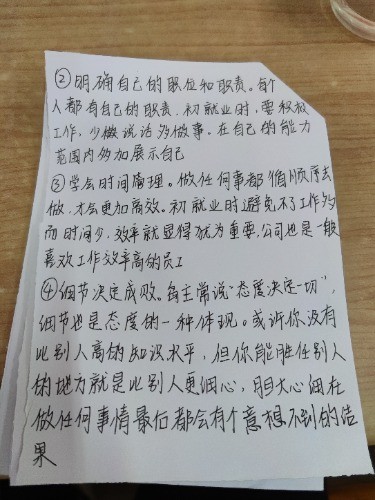 ②明确自己的职位和职责。每个
人都有自己的职责,初就业时,要积极
工作,少做说话多做事。在自己的能力
范围内多加展示自己
③学会时间管理。做任何事都循顺序去
做,才会更加高效。初就业时避免不了工作多
而时间少,效率就显得尤为重要,公司也是一般
喜欢工作效率高的员工
④细节决定成败。每主常说“态度决定一切”,
细节也是态度的一种体现。或许你没有
比别人高的知识水平,但你能胜任别人
的地方就是比别人更细心,胆大心细在
做任何事情最后都会有个意想不到的结
果